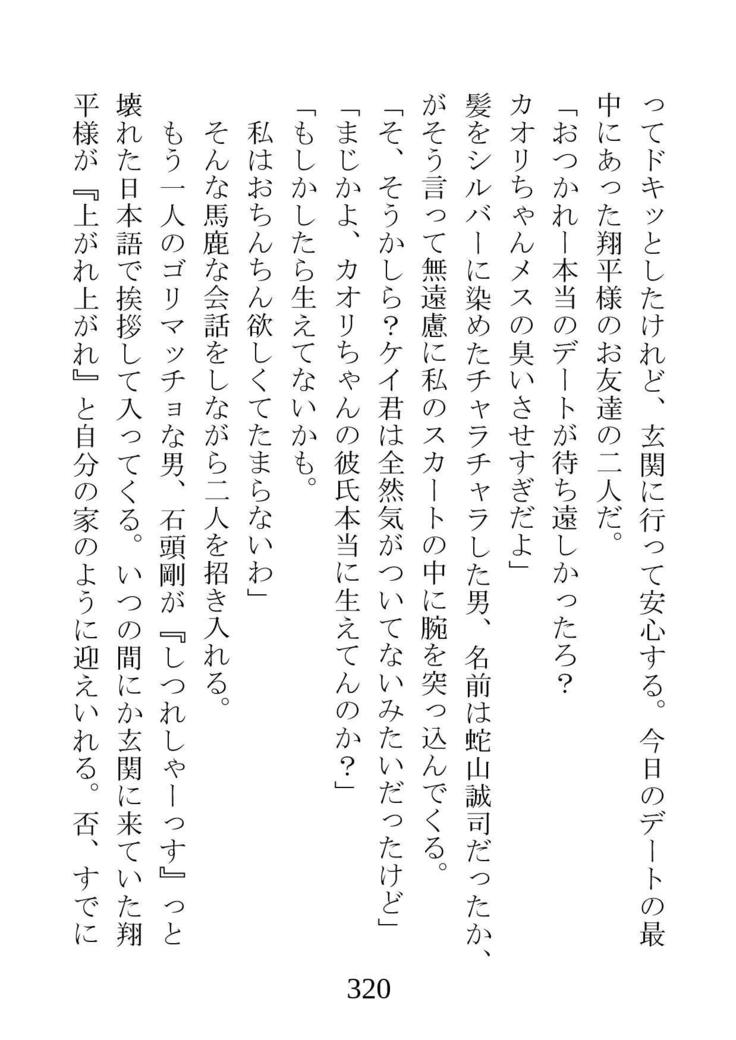 ってドキッとしたけれど、玄関に行って安心する。今日のデートの最
中にあった翔平様のお友達の二人だ。
「おつかれー本当のデートが待ち遠しかったろ?
カオリちゃんメスの臭いさせすぎだよ」
髪をシルバーに染めたチャラチャラした男、名前は蛇山誠司だったか、
がそう言って無遠慮に私のスカートの中に腕を突っ込んでくる。
「そ、そうかしら?ケイ君は全然気がついてないみたいだったけど」
「まじかよ、カオリちゃんの彼氏本当に生えてんのか?」
「もしかしたら生えてないかも。
私はおちんちん欲しくてたまらないわ」
そんな馬鹿な会話をしながら二人を招き入れる。
もう一人のゴリマッチョな男、石頭剛が『しつれしゃーっす』っと
壊れた日本語で挨拶して入ってくる。いつの間にか玄関に来ていた翔
平様が『上がれ上がれ』と自分の家のように迎えいれる。否、すでに
320